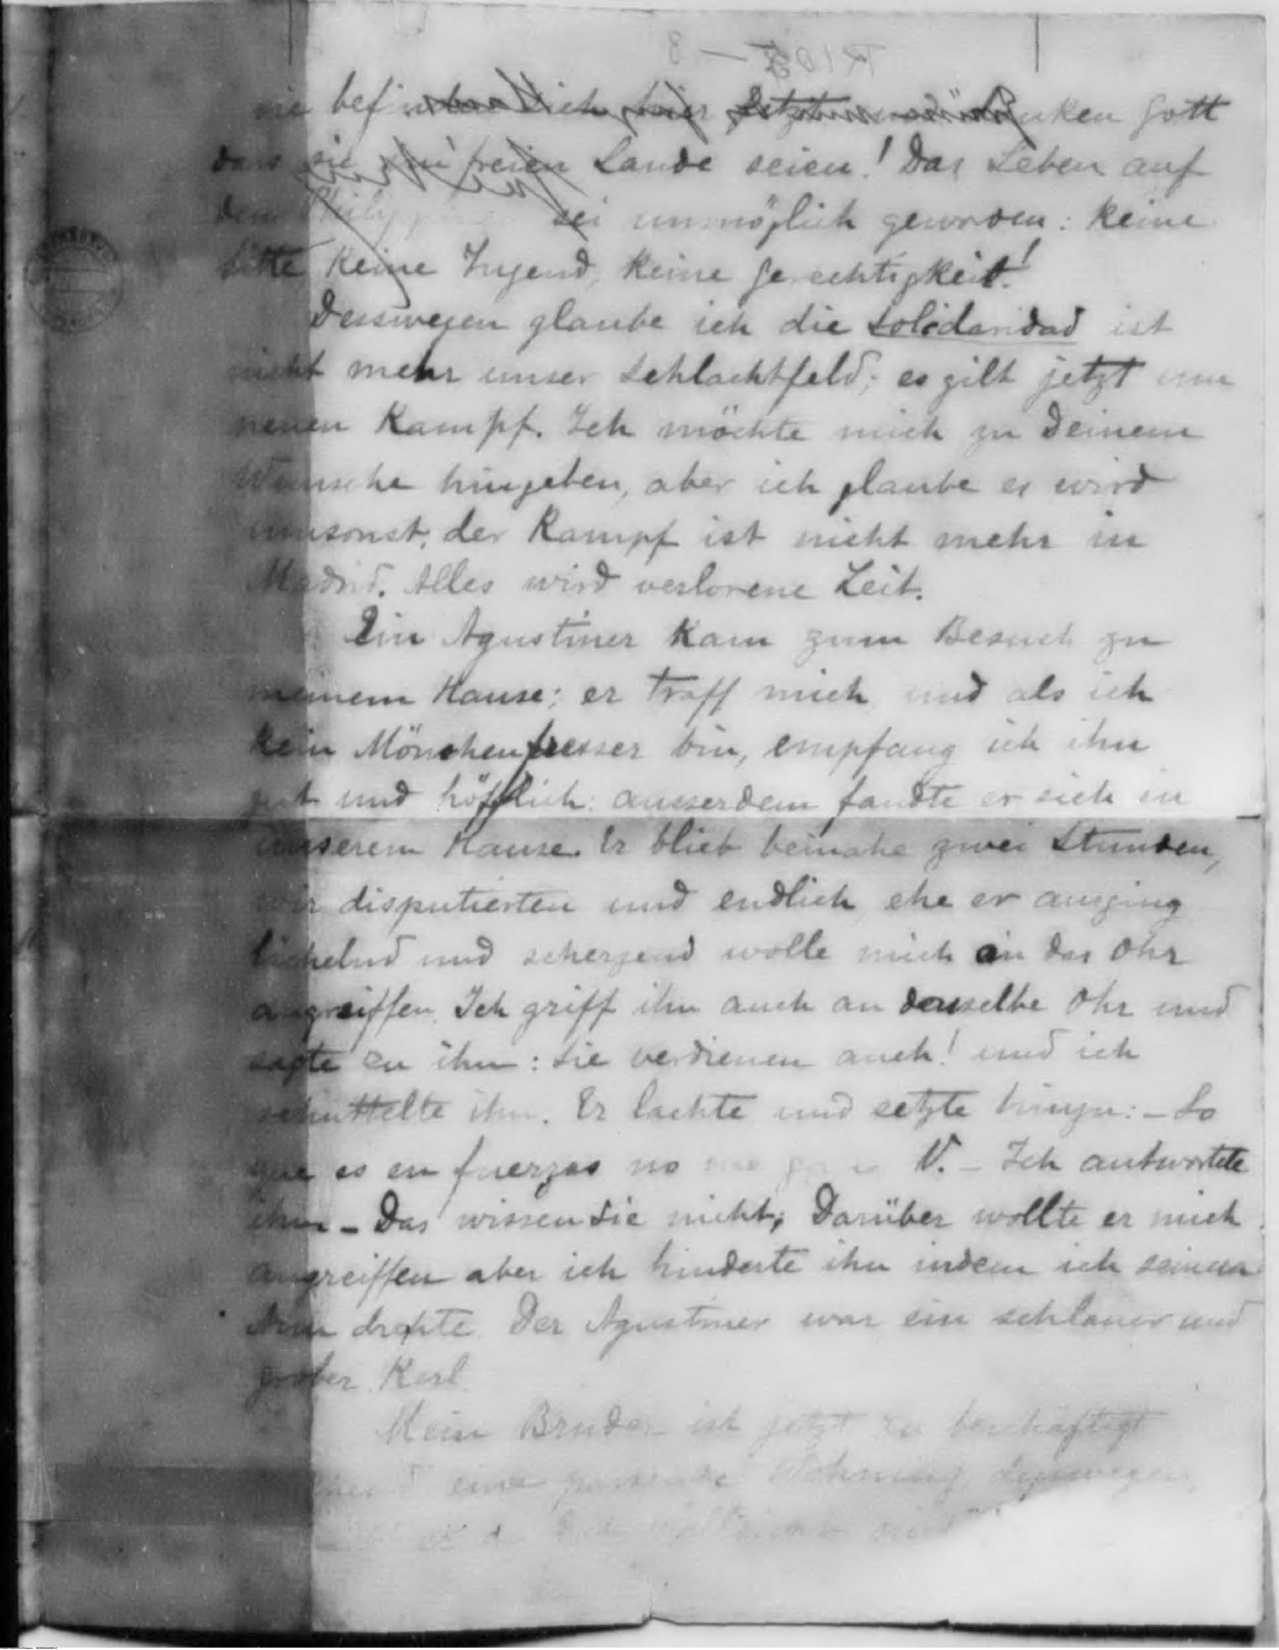 sie befinden sich hier danken Gott
dass sie im freien Lande seien! Das Leben auf
den sei unmöglich geworden: keine
bitte keine Tugend, keine Gerechtigkeit!
Desswegen glaube ich die Solidaridad ist
nicht mehr unser Schlachtfeld; es gilt jetzt
neuen Kampf. Ich möchte mich zu Deinem
Wunsche hingeben, aber ich glaube es wird
umsonst, der Kampf ist nicht mehr in
Madrid. Alles wird verlorene Zeit.
Ein Agustiner kam zum Besuch zu
meinem Hause; er traff mich und als ich
kein Mönchenfresser bin, empfang ich ihn
gut und höfflich: ausserdem fandte er sich in
unserem Hause. Er blieb beinahe zwei Stunden,
wir disputierten und endlich ehe er ausging
lächelnd und scherzend wolle mich an das Ohr
angreiffen. Ich griff ihn auch an denselbe Ohr und
sagte zu ihm: Sie verdienen auch! und ich
schuttelte ihn. Er lachte und setzte hinzu: – Lo
que es en fuerzas no me V. – Ich antwortete
ihm – Das wissen Sie nicht; Darüber wollte er mich
angreiffen aber ich hinderte ihn indem ich seinen
Arm drehte. Der Agustiner war ein schlauer und
grober Kerl.
Mein Bruder ist jetzt zu beschäftigt
eine passende Wohnung desswegen